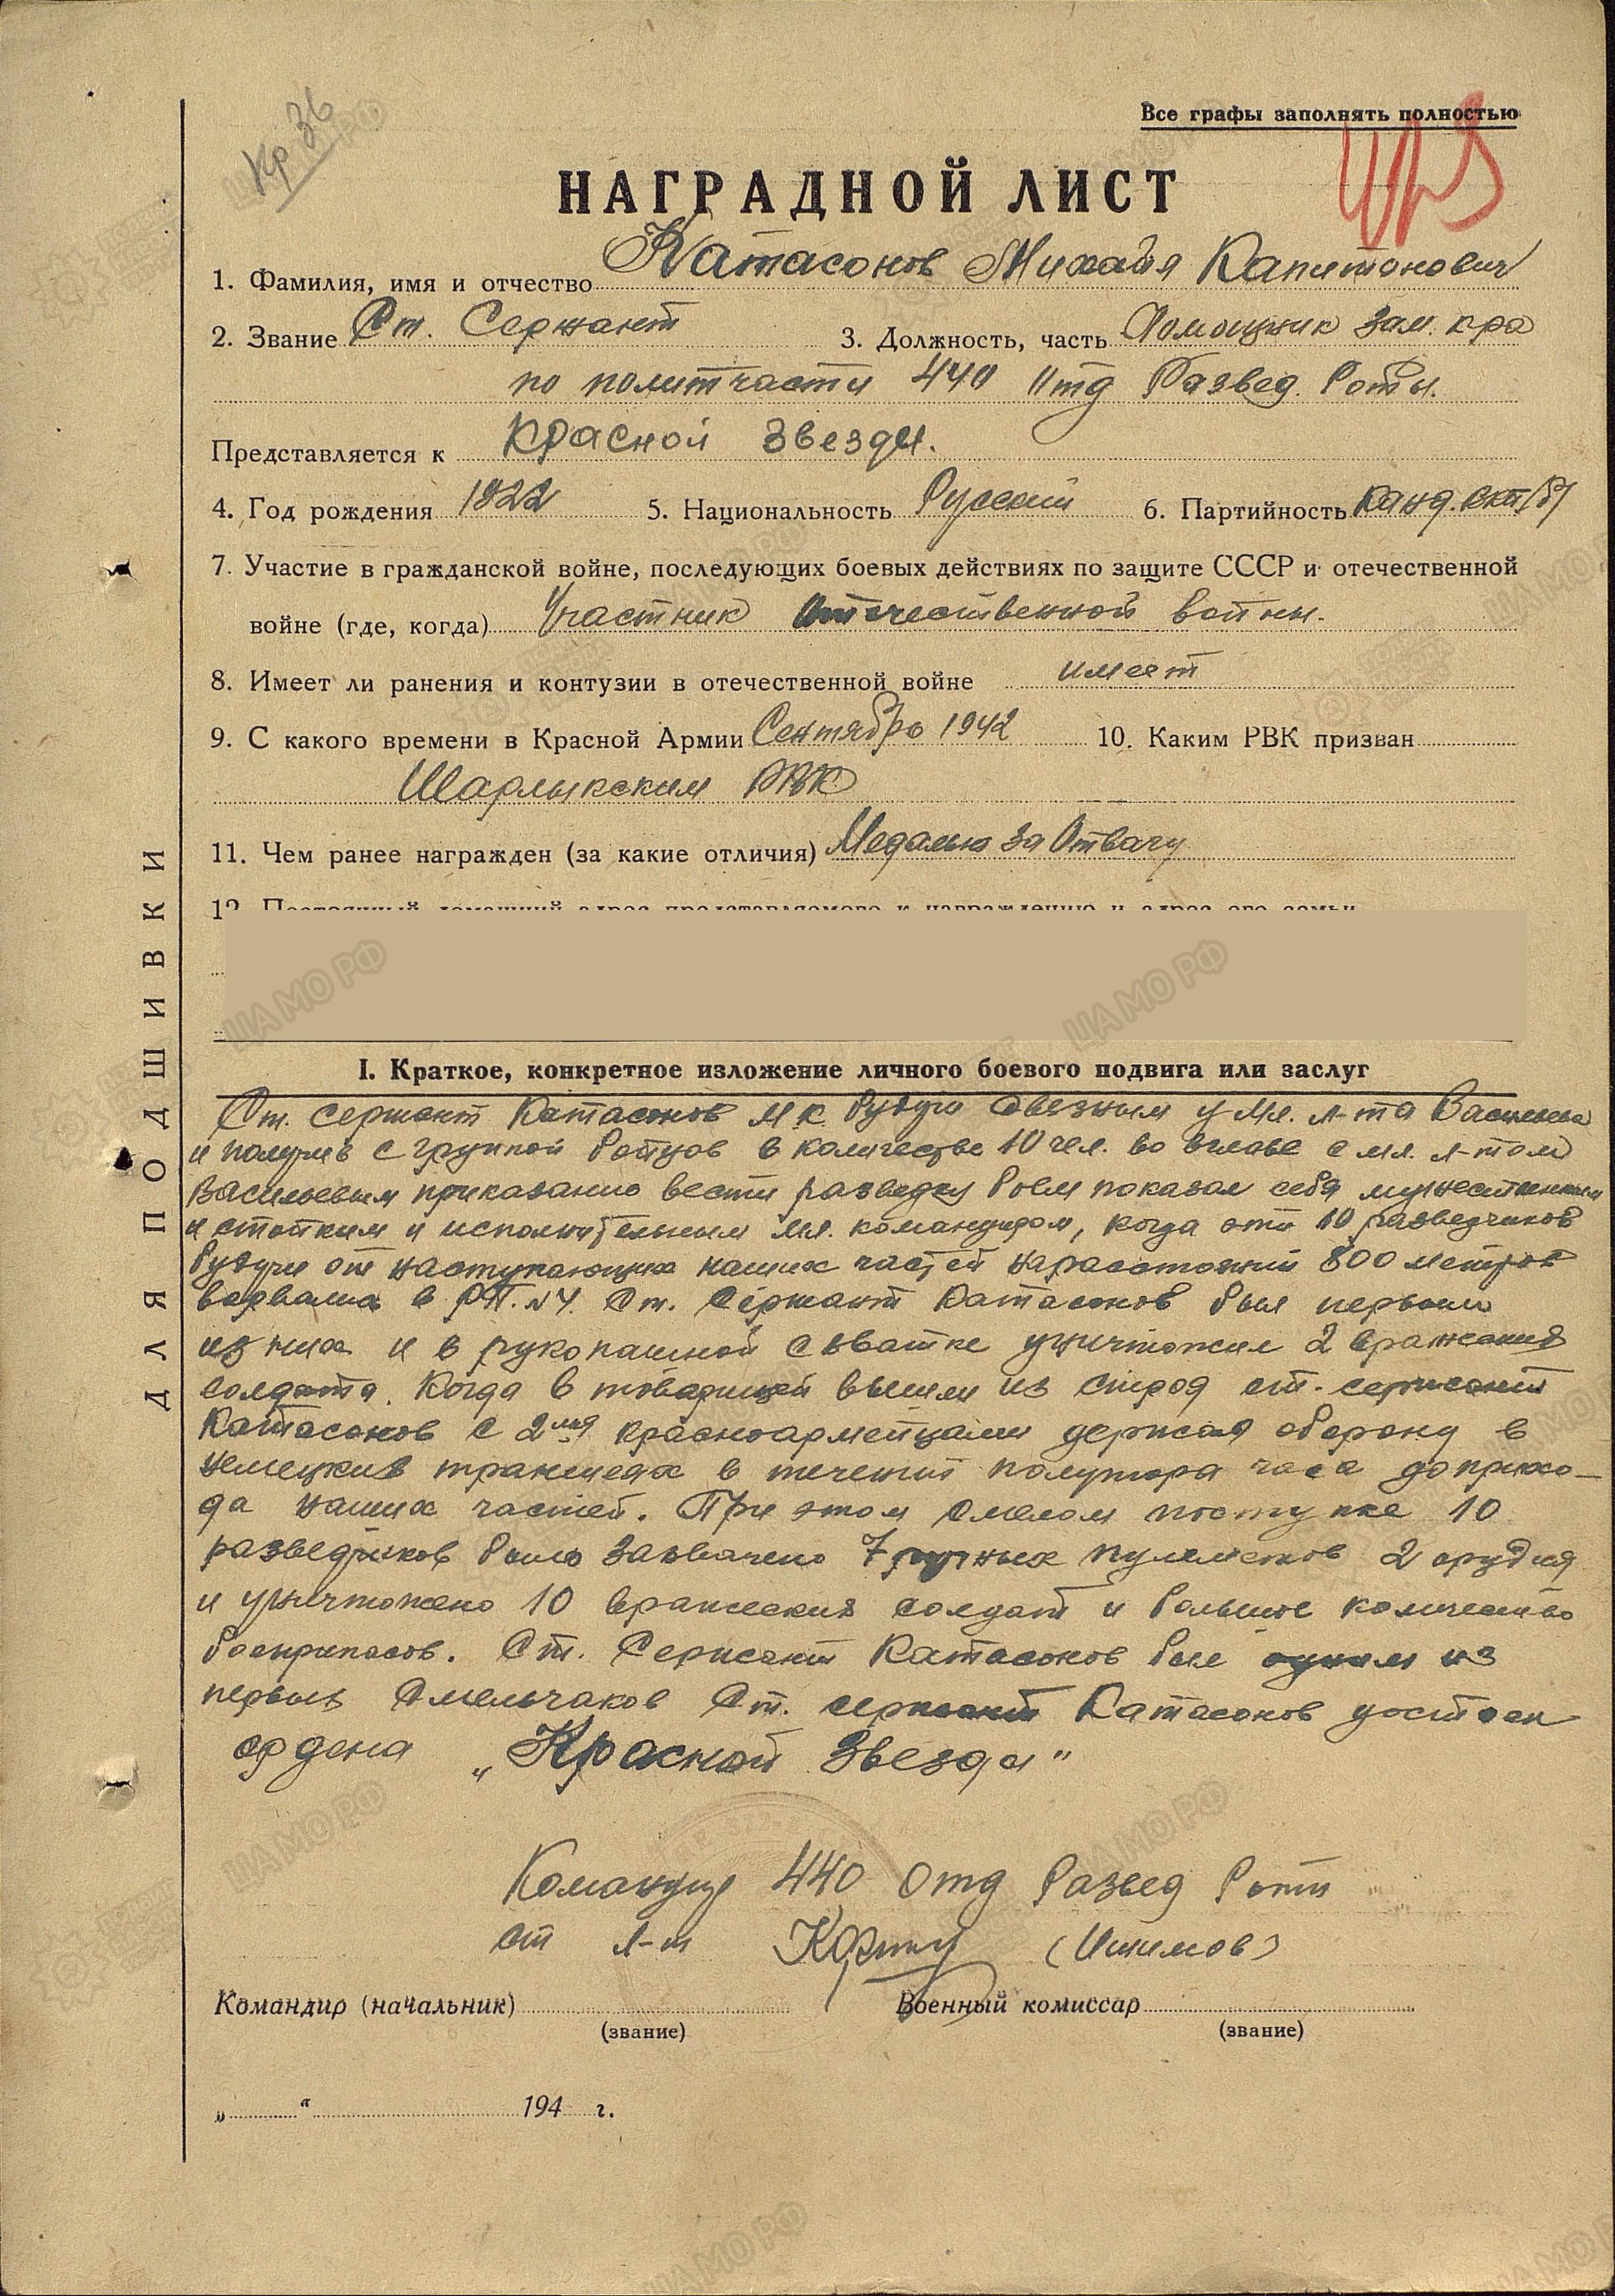 Кр 36
Все графы заполнять полностью
НАГРАДНОЙ ЛИСТ
1. Фамилия, имя и отчество Катасонов Михаил Капитонович
2. Звание Ст. Сержант 3. Должность, часть Помощник Зам. к-ра
по политчасти 440 Отд Развед. Роты.
Представляется к Красной Звезды.
4. Год рождения 1922 5. Национальность Русский 6. Партийность Канд. ВКП/б/
7. Участие в гражданской войне, последующих боевых действиях по защите СССР и отечественной
войне (где, когда) Участник Отечественной войны.
8. Имеет ли ранения и контузии в отечественной войне имеет
9. С какого времени в Красной Армии Сентябрь 1942 10. Каким РВК призван
Шарлыкским РВК
11. Чем ранее награжден (за какие отличия) Медалью За Отвагу
12. Постоянный домашний адрес представляемого к награждению и адрес его семьи
ДЛЯ ПОДШИВКИ
I. Краткое, конкретное изложение личного боевого подвига или заслуг
Ст. сержант Катасонов М К будучи связным у Мл. л-та Васильева
и получив с группой бойцов в количестве 10 чел. во главе с мл. л-том
Васильевым приказание вести разведку боем показал себя мужественным
и стойким и исполнительным мл. командиром, когда эти 10 разведчиков
будучи от наступающих наших частей на расстоянии 800 метров
ворвались в РП. №4. Ст. Сержант Катасонов был первым
из них и в рукопашной схватке уничтожил 2 вражеских
солдата. Когда 6 товарищей вышли из строя ст. сержант
Катасонов с 2мя красноармейцами держал оборону в
немецких траншеях в течении полутора часа до прихо-
да наших частей. При этом смелом поступке 10
разведчиков было захвачено 7 ручных пулеметов 2 орудия
и уничтожено 10 вражеских солдат и большое количество
боеприпасов. Ст. Сержант Катасонов был одним из
первых Смельчаков Ст. сержант Катасонов достоен
ордена „Красной Звезды"
Командир 440 Отд Развед Роты
ст л-т
Командир (начальник) Военный комиссар
(звание) (звание)
„ “ 194 г.
ЦАМО РФ